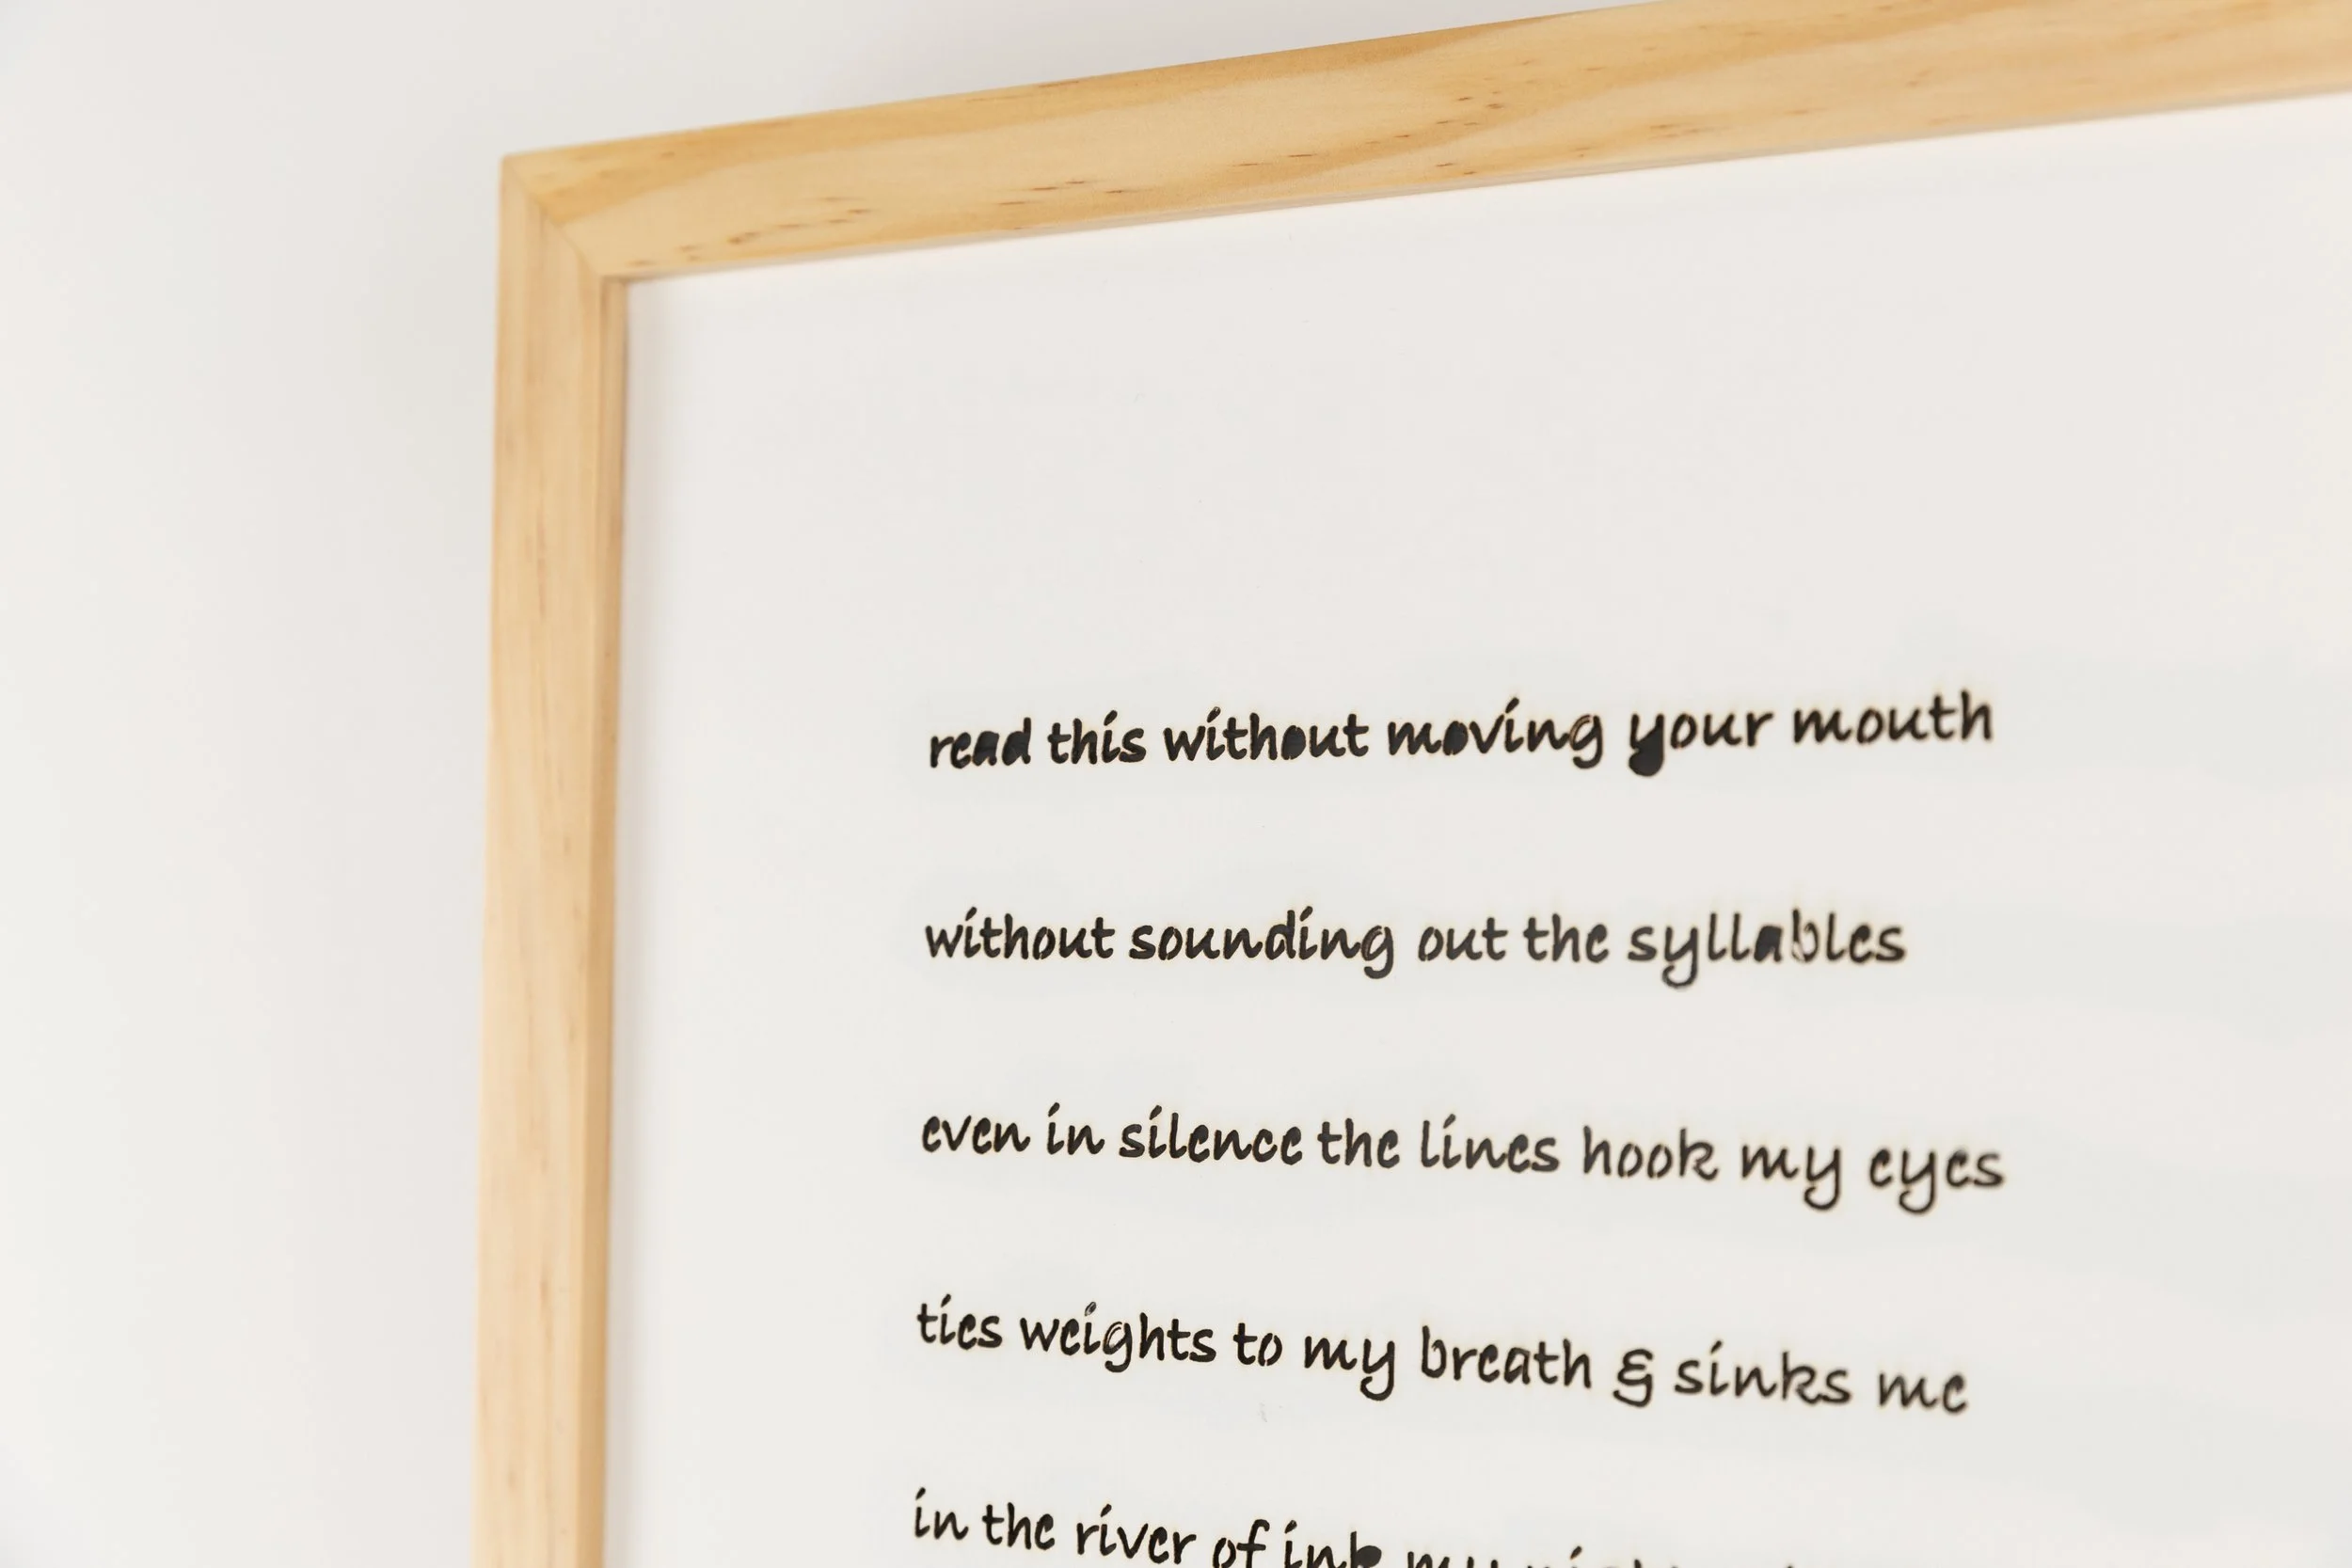 read this without moving your mouth
without sounding out the syllables
even in silence the lines hook my eyes
ties weights to my breath & sinks me
in the river of ink my